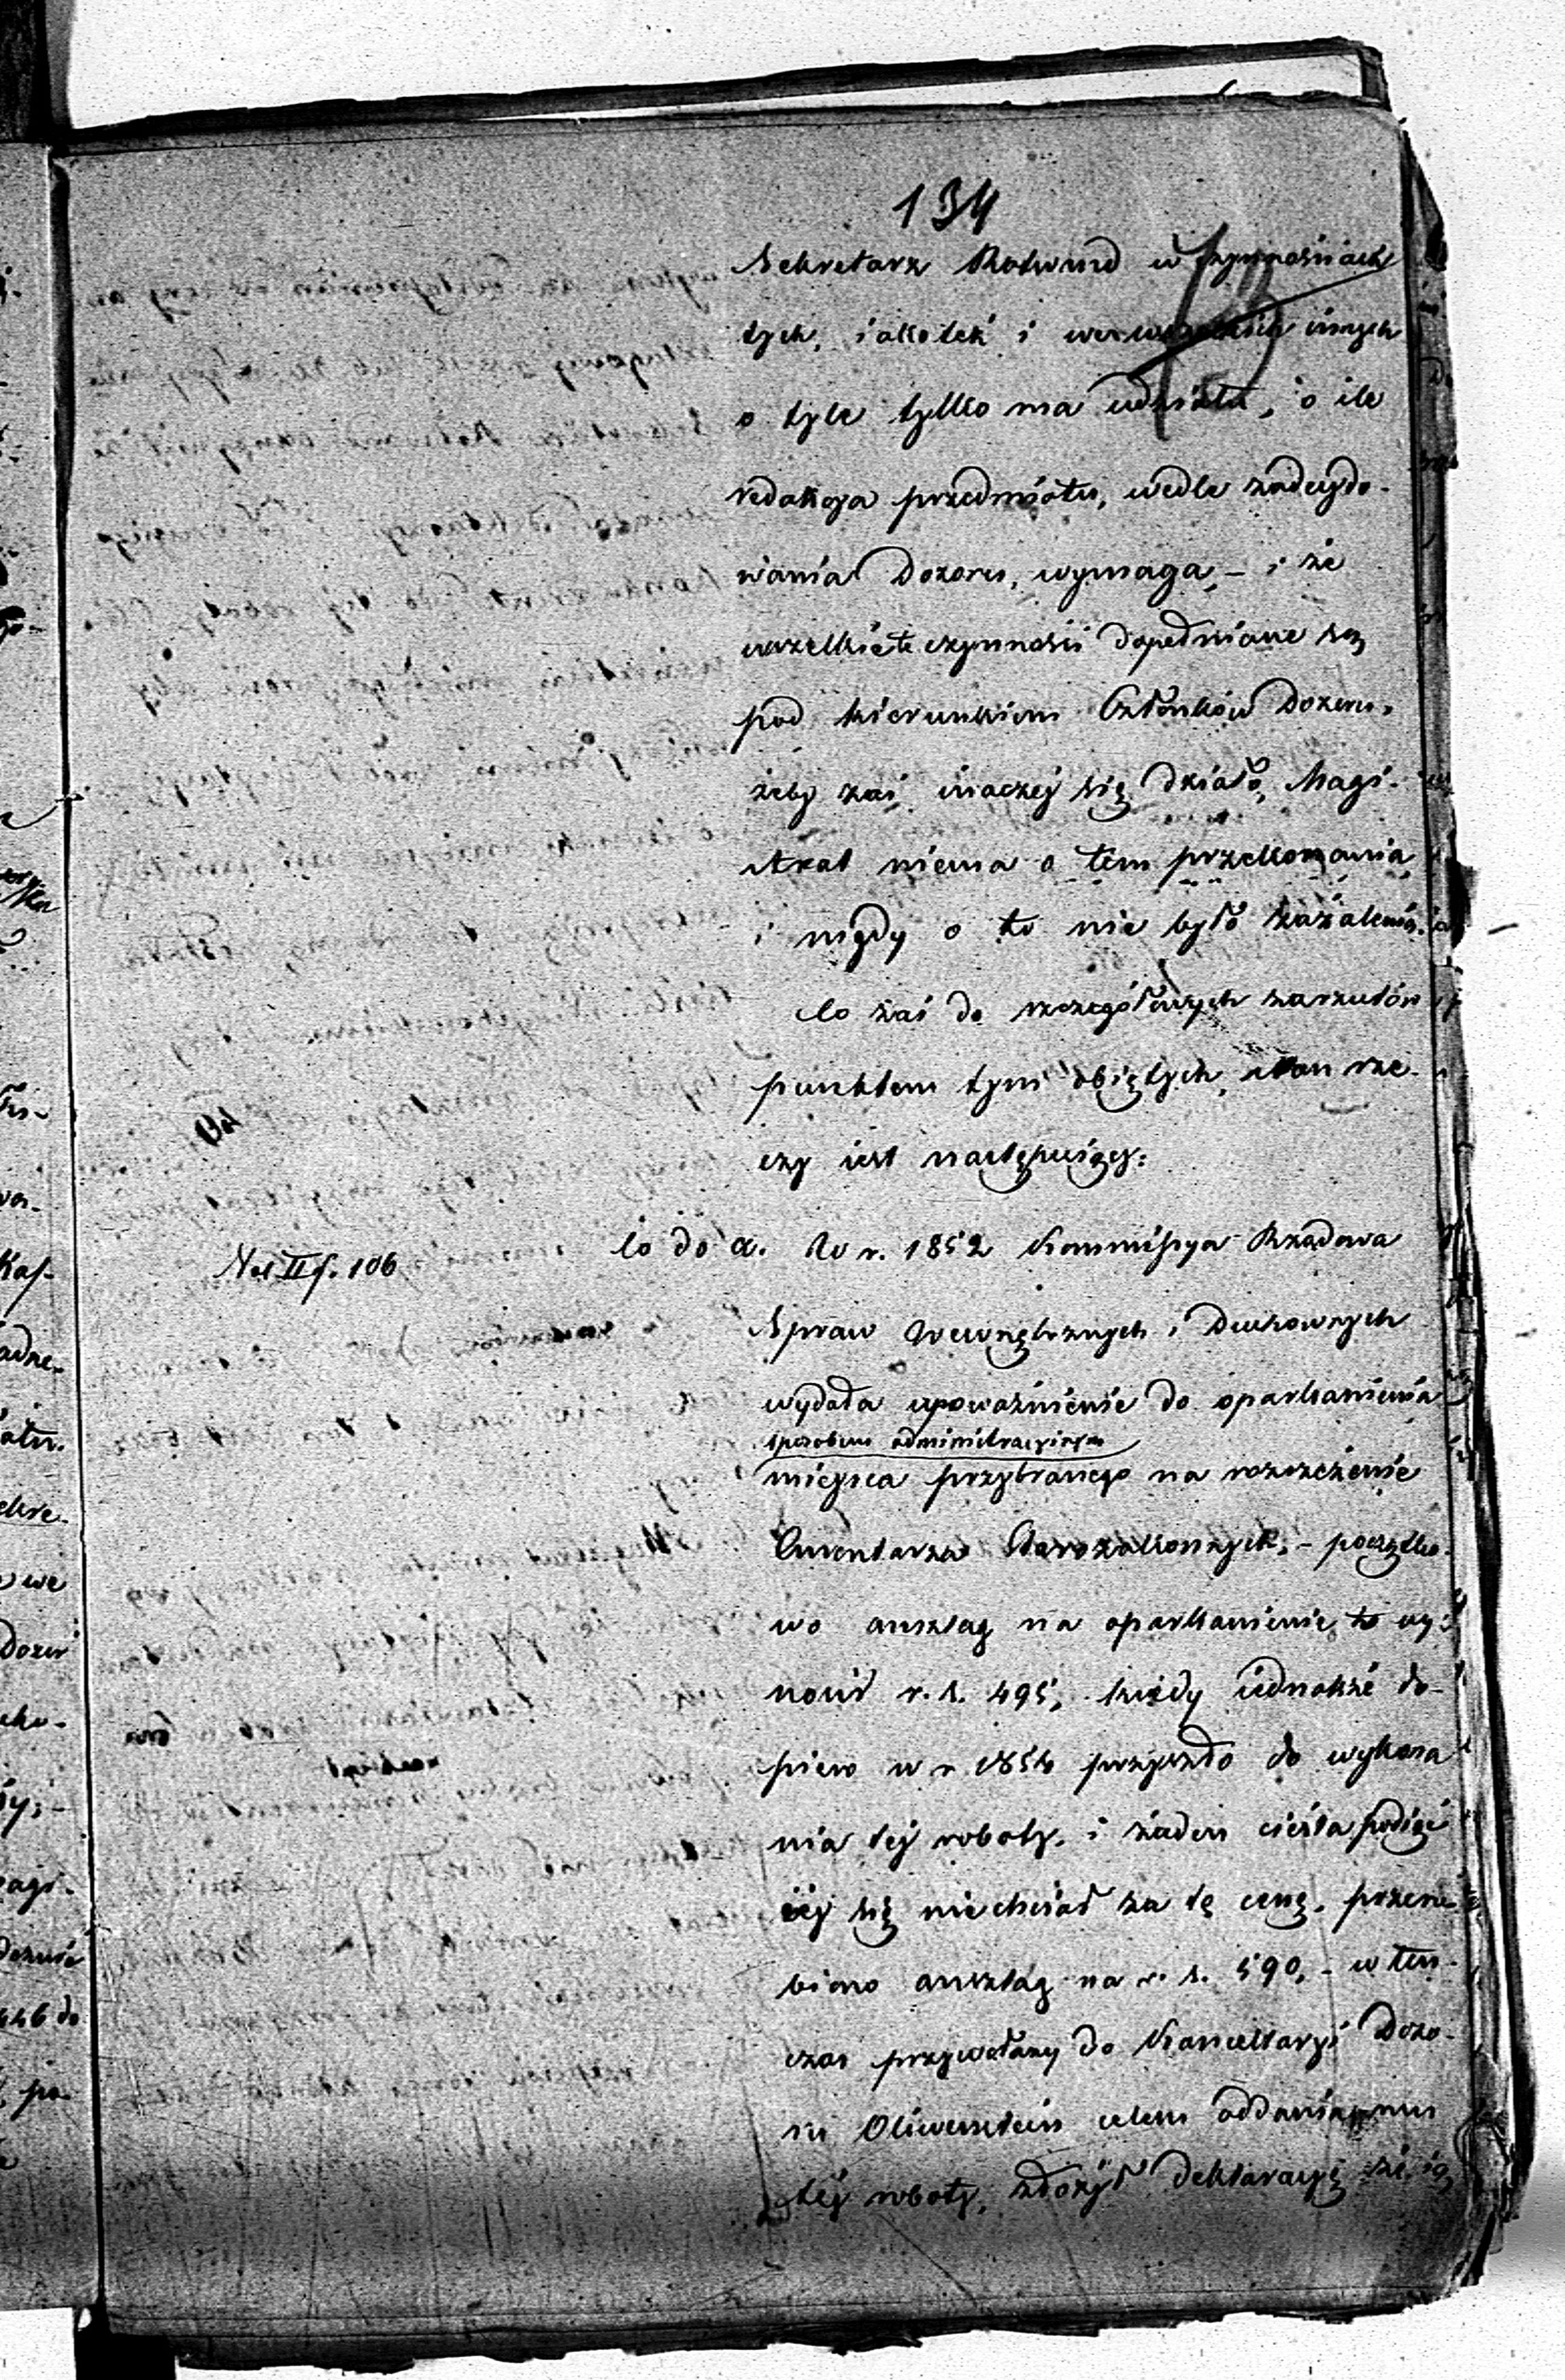 134
Sekretarz Rotwand w czynnościach
tych, iakoteż i we wszelkich innych
o tyle tylko ma udziału, o ile
redakcya przedmiotu, wedle zadecydo-
wania Dozoru, wymaga, - i że
wszelkie te czynności dopełniane są
pod kierunkiem Członków Dozoru,
żeby zaś inaczej się działo, Magi-
strat niema o tem przekonania
i nigdy o to nie było zażalenia.
Co zaś do szczegółowych zarzutów
punktem tym obiętych, stan rze-
czy iest następuiący:
Co do a. W r. 1852 Kommissya Rządowa
Vol II f. 106
Spraw Wewnętrznych i Duchownych
wydała upoważnienie do oparkanienia
sposobem administracyinym
mieysca przybranego na rozszerzenie
Cmentarza Starozakonnych, - początko-
wo anszlag na oparkanienie to wy-
nosił r. s. 495, kiedy iednakże do-
piero w r 1854 przyszło do wykona
nia tey roboty, i żaden cieśla podiąć
iey się nie chciał za tę cenę, przero-
biono anszlag na r. s. 590, - w ten-
czas przywołany do Kancellaryi Dozo-
ru Oliwenstein celem oddania mu
tey roboty, złożył deklaracyę że ią